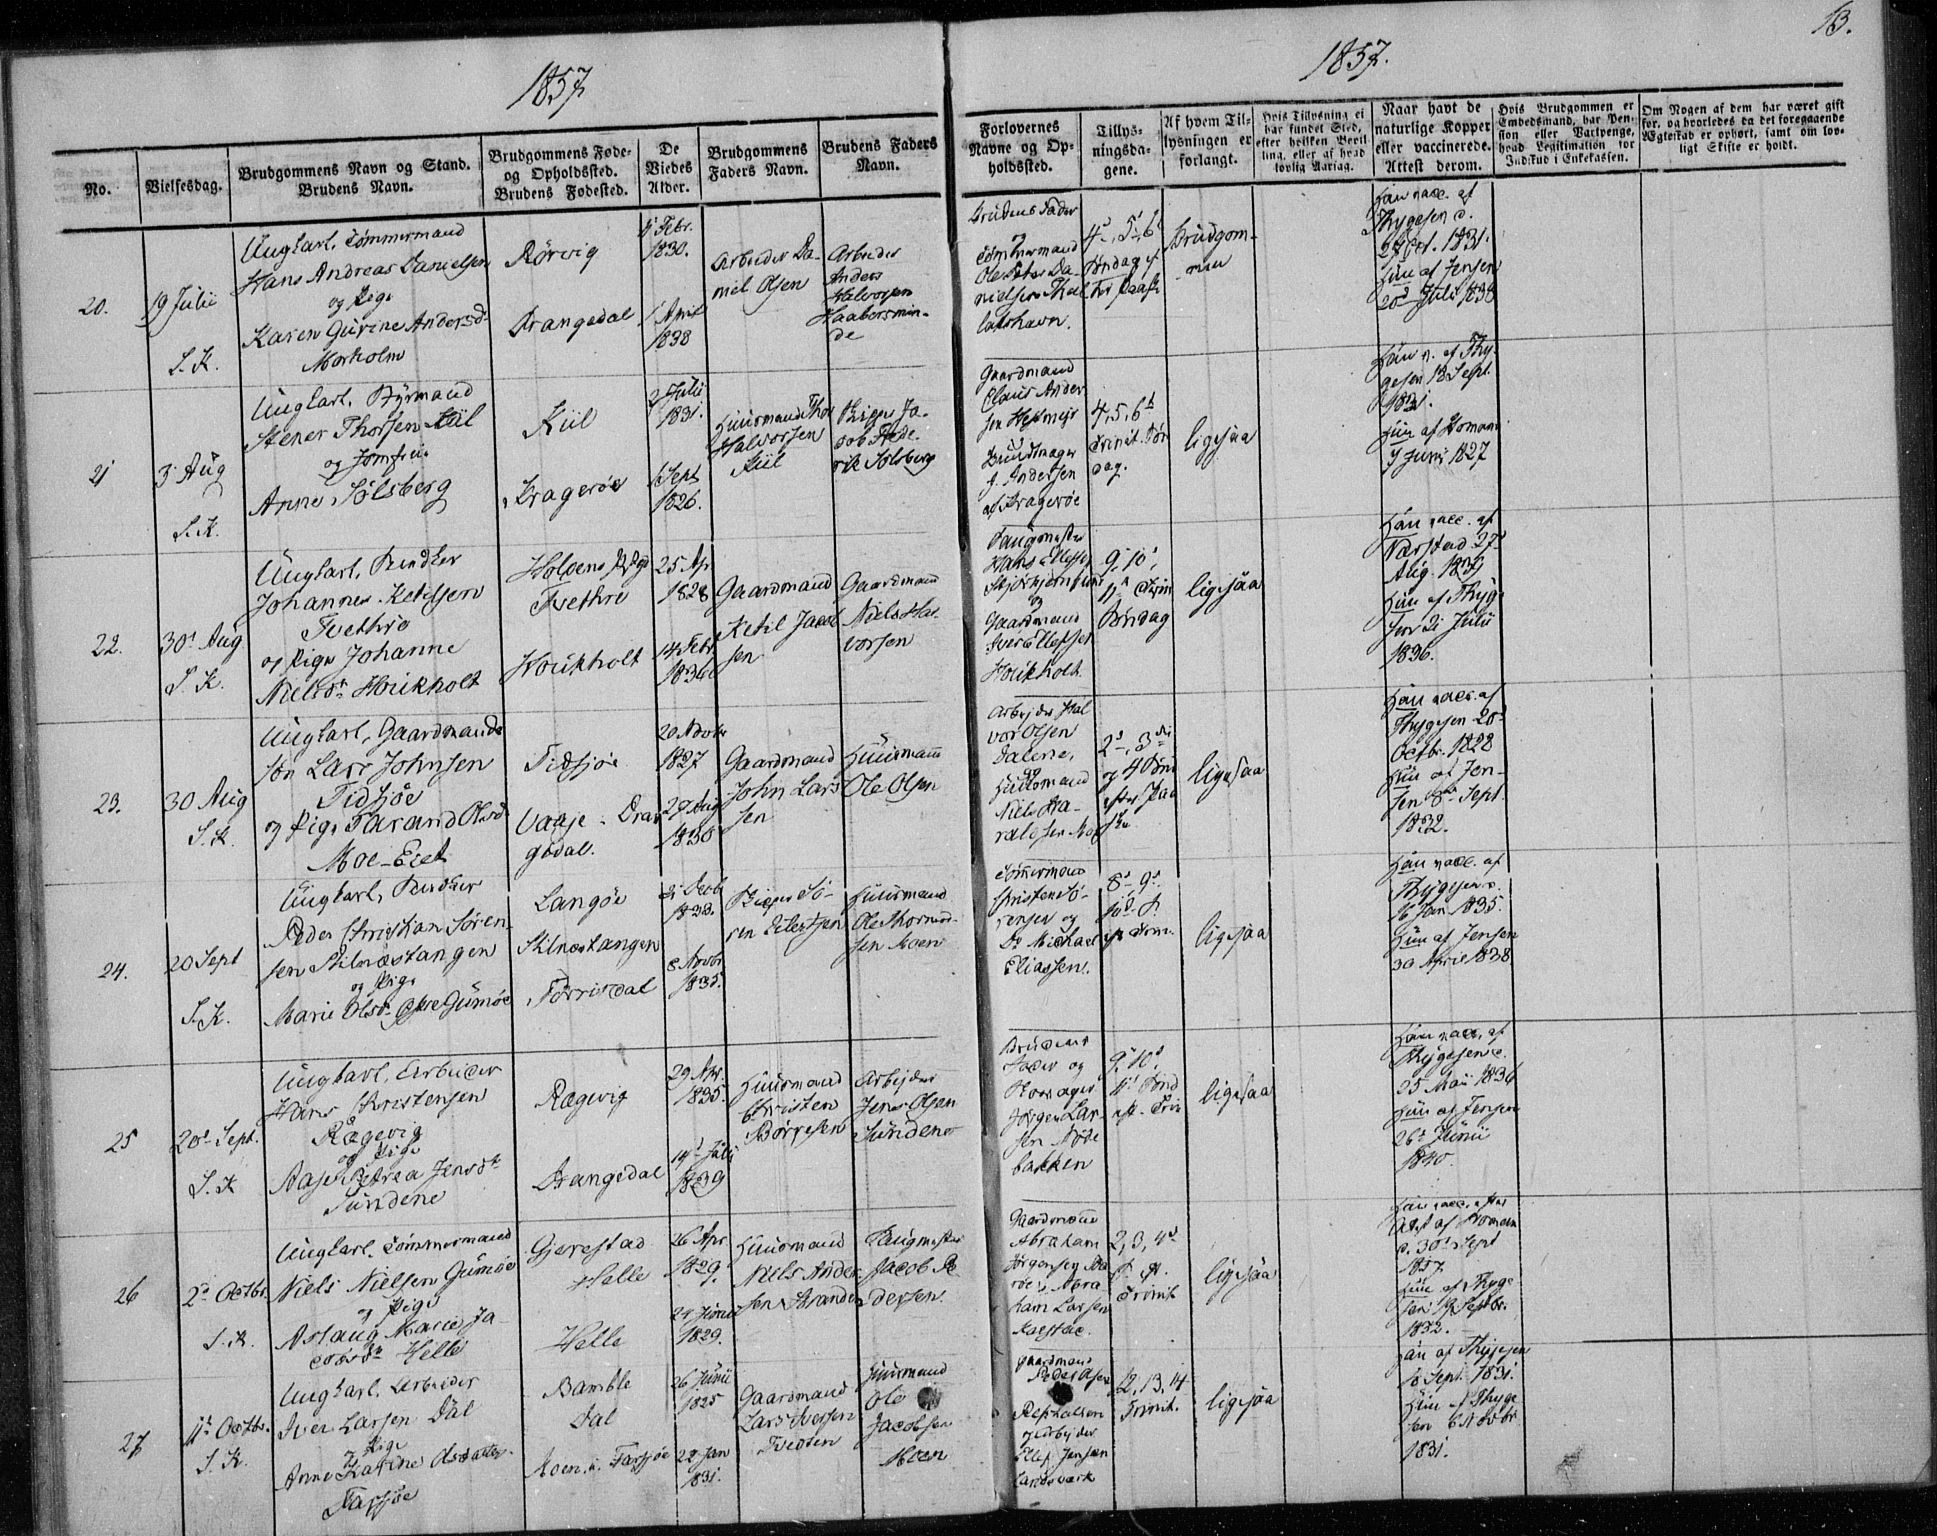 1857
1857.
13.
No.
Vielsesdag.
Brudgommens Navn og Stand.
Brudens Navn.
Brudgommens Føde-
og Opholdssted.
Brudens Fødested.
De
Viedes
Alder.
Brudgommens
Faders Navn.
Brudens Faders
Navn.
Forlovernes
Navne og Op-
holdssted.
Tillys-
ningsda-
gene.
Af hvem Til-
lysningen er
forlangt.
Hvis Tillysning ei
har fundet Sted,
efter hvilken Bevil
ling, eller af hvad
lovlig Aarsag.
Naar havt de
naturlige Kopper
eller vaccinerede.
Attest derom.
Hvis Brudgommen er
Embedsmand, har Pen-
sion eller Vartpenge,
hvad Legitimation for
Indskud i Enkekassen.
Om Nogen af dem har været gift
før, og hvorledes da det foregaaende
Ægteskab er ophørt, samt om lov-
ligt Skifte er holdt.
20.
19 Julii
S. K.
Ungkarl, Tømmermand
Hans Andreas Danielsen
og Pige
Karen Gurine Andersd.
Morholm
Rørvig
Drangedal
Febr.
1830.
1 April
1838
Arbeider Da-
niel Olsen
Arbeider
Anders
Halvorsen
Haabersmin-
de
Brudens Fader
og
Tømmermand
Ole Peter Da-
nielsen
Søndag
Brudgom-
men
Han vacc. af
Thygesen d.
1831.
Hun af Jensen
20d Juli 1838
21
3 Aug
S. K.
Ungkarl, Styrmand
Stener Thorsen Kiil
og Jomfru
Anne Sølsberg
Kiil
Kragerøe
2 Julii
1831.
Sept
1826.
Huusmand Thor
Halvorsen
Kiil
Skipper Ja-
cob Frede-
rik Sølsberg
Gaardmand
Claus Ander
sen
J. Andersen
af Kragerøe
4, 5, 6t
Trinit. Søn
dag.
ligesaa
Han v. af Thy-
gesen 18 Sept.
1831.
Hun af Homann
7 Juni 1827
22.
30t Aug
S. K.
Ungkarl,
Johannes Ketilsen
Tvethre
og Pige Johanne
Nielsdr Houkholt
Tvethre
Houkholt
25 Apr
1828
14 Febr
Gaardmand
Ketil Jacob
sen
Gaardmand
Niels Hal-
vorsen
Laugmester
Hans Ellefsen
og
Gaardmand
Iver Ellefsen
Houkholt
9, 10,
11t Trin
Søndag
ligesaa
Han vacc. af
Aug.
Hun af Thyge
sen 21 Julii
1836.
23.
30 Aug
S. K.
Ungkarl, Gaardmands
søn Lars Johnsen
Tidsjøe
og Pige Tarand Olsd
Moe-Eiet
Tidsjøe
Vaaje Dran
gedal.
20 Novbr
1827
Aug
1830
Gaardmand
John Lars
sen
Huusmand
Ole Olsen
Arbejder Hal
vor Olsen
Dalene,
og
Huusmand
Niels Ha-
raldsen Moe
2d, 3die
og 4 Sønd
efter Paa
ske
ligesaa
Han vacc. af
Thygesen 20d
Octbr. 1828
Hun af Jen-
sen 8d Sept.
1832.
24.
20 Sept
S. K.
Ungkarl,
Peder Christian Søren-
sen Stilnæstangen
og Pige
Marie Olsdr Øvre Gumøe
Langøe
Stilnæstangen
Tørrisdal
1833.
8 Novbr
1835.
Skipper Sø-
ren Eilertsen
Huusmand
Ole Thormod-
sen Moen
Tømmermand
Christen Sø-
rensen og
Do Michael
Eliassen.
8d 9d
10d S.
eft. Trin.
ligesaa
Han vacc. af
Thygesen d.
16 Jan 1835.
Hun af Jensen
30 April 1838
25
20d Sept.
S. K
Ungkarl, Arbeider
Hans Christensen
Rægevig
og Pige
Aase Petrea Jensdtr
Sundene
Rægevig
Drangedal
29 Apr
1835.
14d Juli
1839
Huusmand
Christen
Børresen
Arbejder
Jens Olsen
Sundene
Brudens
Fader og
Skomager
Jørgen Lar-
sen
bakken
9, 10d,
11d Sønd
eft. Trin
ligesaa
Han vacc. af
Thygesen d.
25 Mai 1836
Hun af Jensen
26d Junii
1840.
26
2d Octbr.
S. K.
Ungkarl. Tømmermand
Niels Nielsen Gumøe
og Pige
Aslaug Marie Ja-
cobsdr Helle
Gjerestad
Helle
Helle
26 Apr
1829.
24 Junii
1829.
Huusmand
Niels Ander
sen Stranden
Laugmester
Jacob Pe
dersen.
Gaardmænd
Abraham
Jørgensen
Abra
ham Larsen
Kalstad.
2, 3, 4d
S. eft.
Trinit
ligesaa
Han vacc. efter
Attest af Homann
d. 30d Sept
1857.
Hun af Thyge
sen 19 Septbr.
1832.
27
11t Octbr.
S. K.
Ungkarl, Arbeider
Iver Larsen Dal
og Pige
Anne Karine Olsdatter
Farsjøe
Bamble
Dal
Moen u. Farsjøe
26 Junii
1825
22 Jan
1831.
Gaardmand
Lars Iversen
Tvedten
Huusmand
Ole
Jacobsen
Moen
Gaardmand
Peder Olsen
og Arbejder
Ellef Jensen
12, 13, 14
Trinit.
ligesaa
Han af Thygesen
18 Sept. 1831.
Hun af Thyge
sen 6 Novbr
1831.